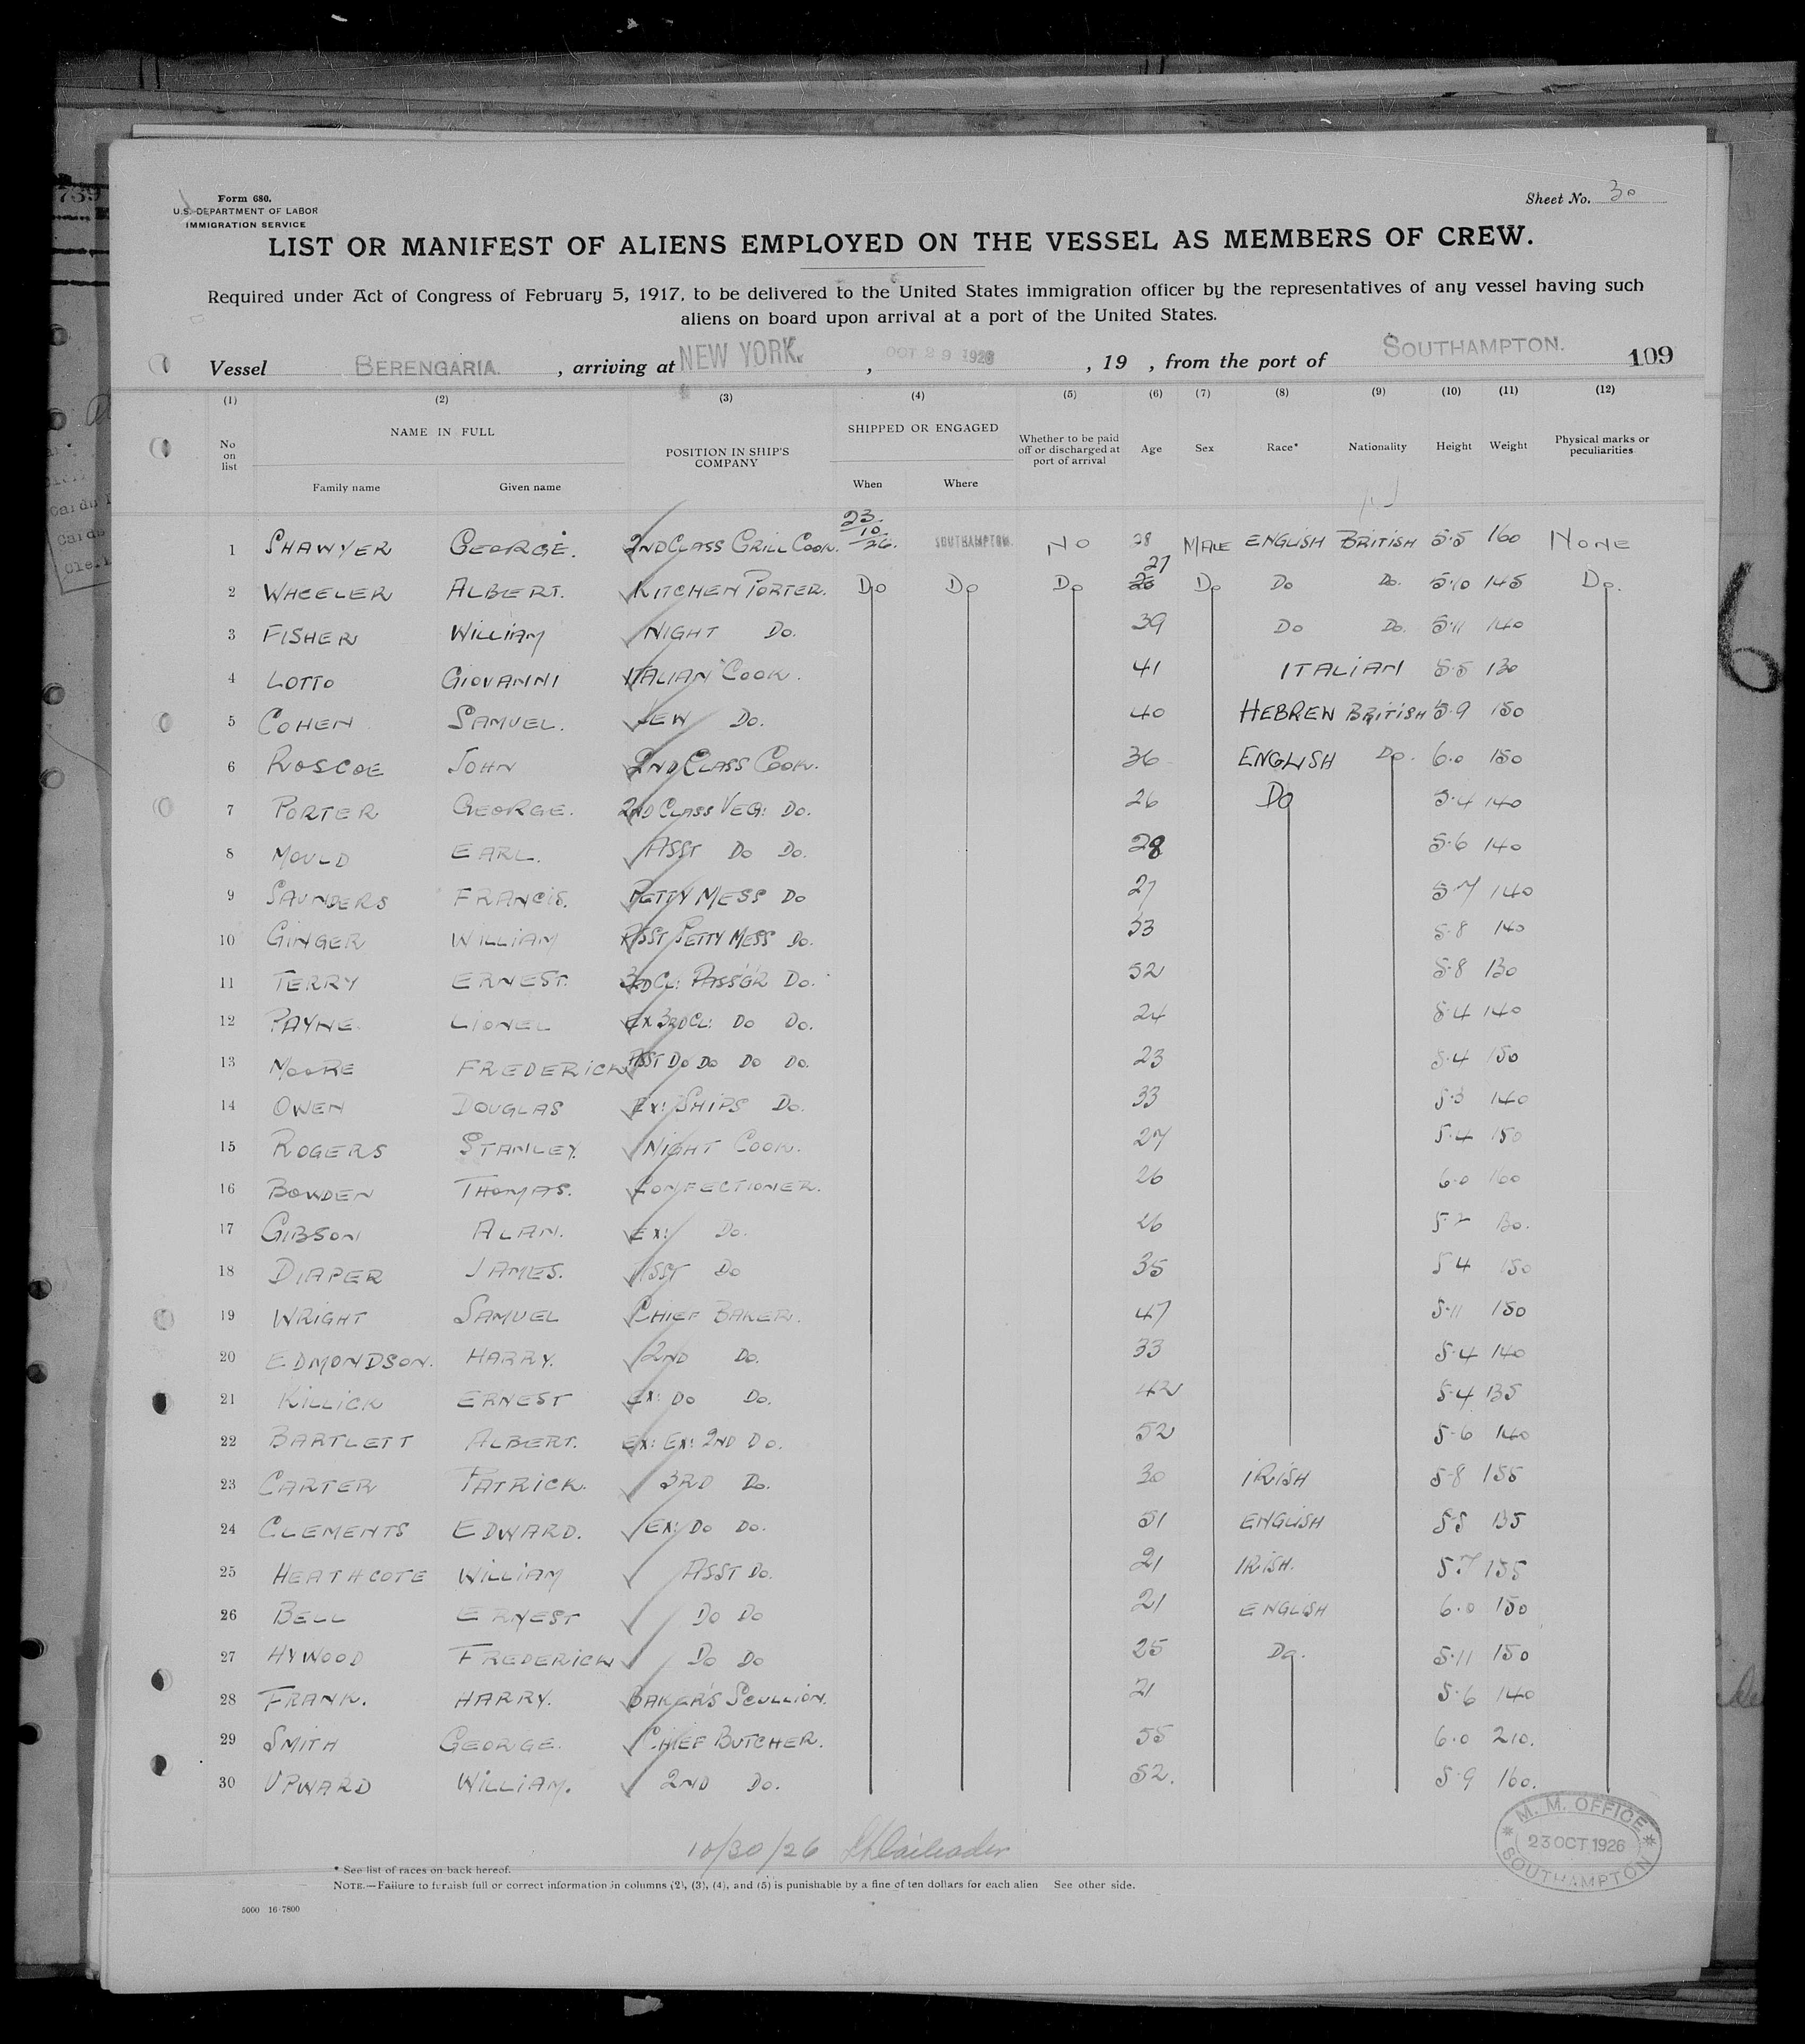 Form 680.
U.S. DEPARTMENT OF LABOR
IMMIGRATION SERVICE
Sheet No. 30
LIST OR MANIFEST OF ALIENS EMPLOYED ON THE VESSEL AS MEMBERS OF CREW.
Required under Act of Congress of February 5, 1917, to be delivered to the United States immigration officer by the representatives of any vessel having such
aliens on board upon arrival at a port of the United States.
Vessel BERENGARIA. , arriving at NEW YORK. , OCT 29 1926 , 19 , from the port of SOUTHAMPTON. 109
(1) (2) (3) (4) (5) (6) (7) (8) (9) (10) (11) (12)
No on list NAME IN FULL POSITION IN SHIP'S COMPANY SHIPPED OR ENGAGED Whether to be paid off or discharged at port of arrival Age Sex Race* Nationality Height Weight Physical marks or peculiarities
Family name Given name When Where
1 SHAWYER GEORGE. 2ND CLASS GRILL COOK. 23/10/26. SOUTHAMPTON. NO 28 MALE ENGLISH BRITISH 5.5 160 NONE
2 WHEELER ALBERT. KITCHEN PORTER. DO DO DO 27 DO DO DO. 5.10 145 DO.
3 FISHER WILLIAM NIGHT DO. 39 DO DO. 5.11 140
4 LOTTO GIOVANNI ITALIAN COOK. 41 ITALIAN 5.5 130
5 COHEN SAMUEL. JEW DO. 40 HEBREW BRITISH 5.9 150
6 ROSCOE JOHN 2ND CLASS COOK. 36 ENGLISH DO. 6.0 150
7 PORTER GEORGE. 2ND CLASS VEG: DO. 26 DO 5.4 140
8 MOULD EARL. ASST DO DO. 28 5.6 140
9 SAUNDERS FRANCIS. PETTY MESS DO 27 5.7 140
10 GINGER WILLIAM ASST PETTY MESS DO. 33 5.8 140
11 TERRY ERNEST. 3RD CL: PASS'G'R DO. 52 5.8 130
12 PAYNE LIONEL EX 3RD CL: DO DO. 24 5.4 140
13 MOORE FREDERICK ASST DO DO DO DO. 23 5.4 150
14 OWEN DOUGLAS EX: SHIPS DO. 33 5.3 140
15 ROGERS STANLEY. NIGHT COOK. 27 5.4 150
16 BOWDEN THOMAS. CONFECTIONER. 26 6.0 160
17 GIBSON ALAN. EX: DO. 26 5.2 130.
18 DIAPER JAMES. ASST DO 35 5.4 150
19 WRIGHT SAMUEL CHIEF BAKER. 47 5.11 150
20 EDMONDSON. HARRY. 2ND DO. 33 5.4 140
21 KILLICK ERNEST EX: DO DO. 42 5.4 135
22 BARTLETT ALBERT. EX: EX: 2ND DO. 52 5.6 140
23 CARTER PATRICK. 3RD DO. 30 IRISH 5.8 155
24 CLEMENTS EDWARD. EX: DO DO. 51 ENGLISH 5.5 135
25 HEATHCOTE WILLIAM ASST DO. 21 IRISH. 5.7 155
26 BELL ERNEST DO DO 21 ENGLISH 6.0 150
27 HYWOOD FREDERICK DO DO 25 DO. 5.11 150
28 FRANK. HARRY. BAKER'S SCULLION. 21 5.6 140
29 SMITH GEORGE. CHIEF BUTCHER. 55 6.0 210.
30 UPWARD WILLIAM. 2ND DO. 52. 5.9 160.
M. M. OFFICE
23 OCT 1926
SOUTHAMPTON
10/30/26
* See list of races on back hereof.
NOTE.—Failure to furnish full or correct information in columns (2), (3), (4), and (5) is punishable by a fine of ten dollars for each alien See other side.
5000 16-7800